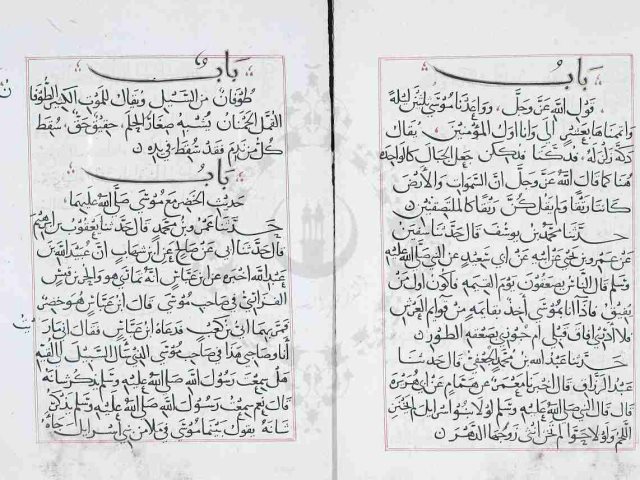 باب
قول الله عز وجل وواعدنا موسى ثلثين ليلة
واتممناها بعشر الى وانا اول المؤمنين يقال
دكه زلزله فدكتا فدككن جعل الجبال كالواحدة
كما قال الله عز وجل ان السموات والأرض
كانتا رتقا ولم يقل كن رتقا ملتصقتين
حدثنا محمد بن يوسف قال حدثنا سفين
عن عمرو بن يحيى عن ابيه عن ابي سعيد عن النبي صلى الله عليه
وسلم قال الناس يصعقون يوم القيمة فاكون اول من
يفيق فاذا انا بموسى آخذ بقائمة من قوائم العرش
فلا ادري افاق قبلي ام جوزي بصعقة الطور
حدثنا عبد الله بن محمد الجعفي قال حدثنا
عبد الرزاق قال اخبرنا معمر عن همام عن ابي هريرة
قال قال النبي صلى الله عليه وسلم لولا بنو اسرائل لم يخنز
اللحم ولولا حوا لم تخن انثى زوجها الدهر
باب
طوفان من السيل ويقال للموت الكثير الطوفان
القمل الحمنان يشبه صغار الحلم حقيق حق سقط
كل من ندم فقد سقط في يده
باب
حديث الخضر مع موسى صلى الله عليهما
حدثنا عمرو بن محمد قال حدثنا يعقوب بن ابراهيم
قال حدثنا ابي عن صالح عن ابن شهاب ان عبيد الله بن
عبد الله اخبره عن ابن عباس انه تمارى هو والحر بن قيس
الفزاري في صاحب موسى قال ابن عباس هو خضر
فمر بهما ابي بن كعب فدعاه ابن عباس فقال اني تماريت
انا وصاحبي هذا في صاحب موسى الذي سال السبيل الى لقيه
هل سمعت رسول الله صلى الله عليه وسلم يذكر شانه
قال نعم سمعت رسول الله صلى الله عليه وسلم يذكر
شانه يقول بينما موسى في ملا من بني اسرايل جاه